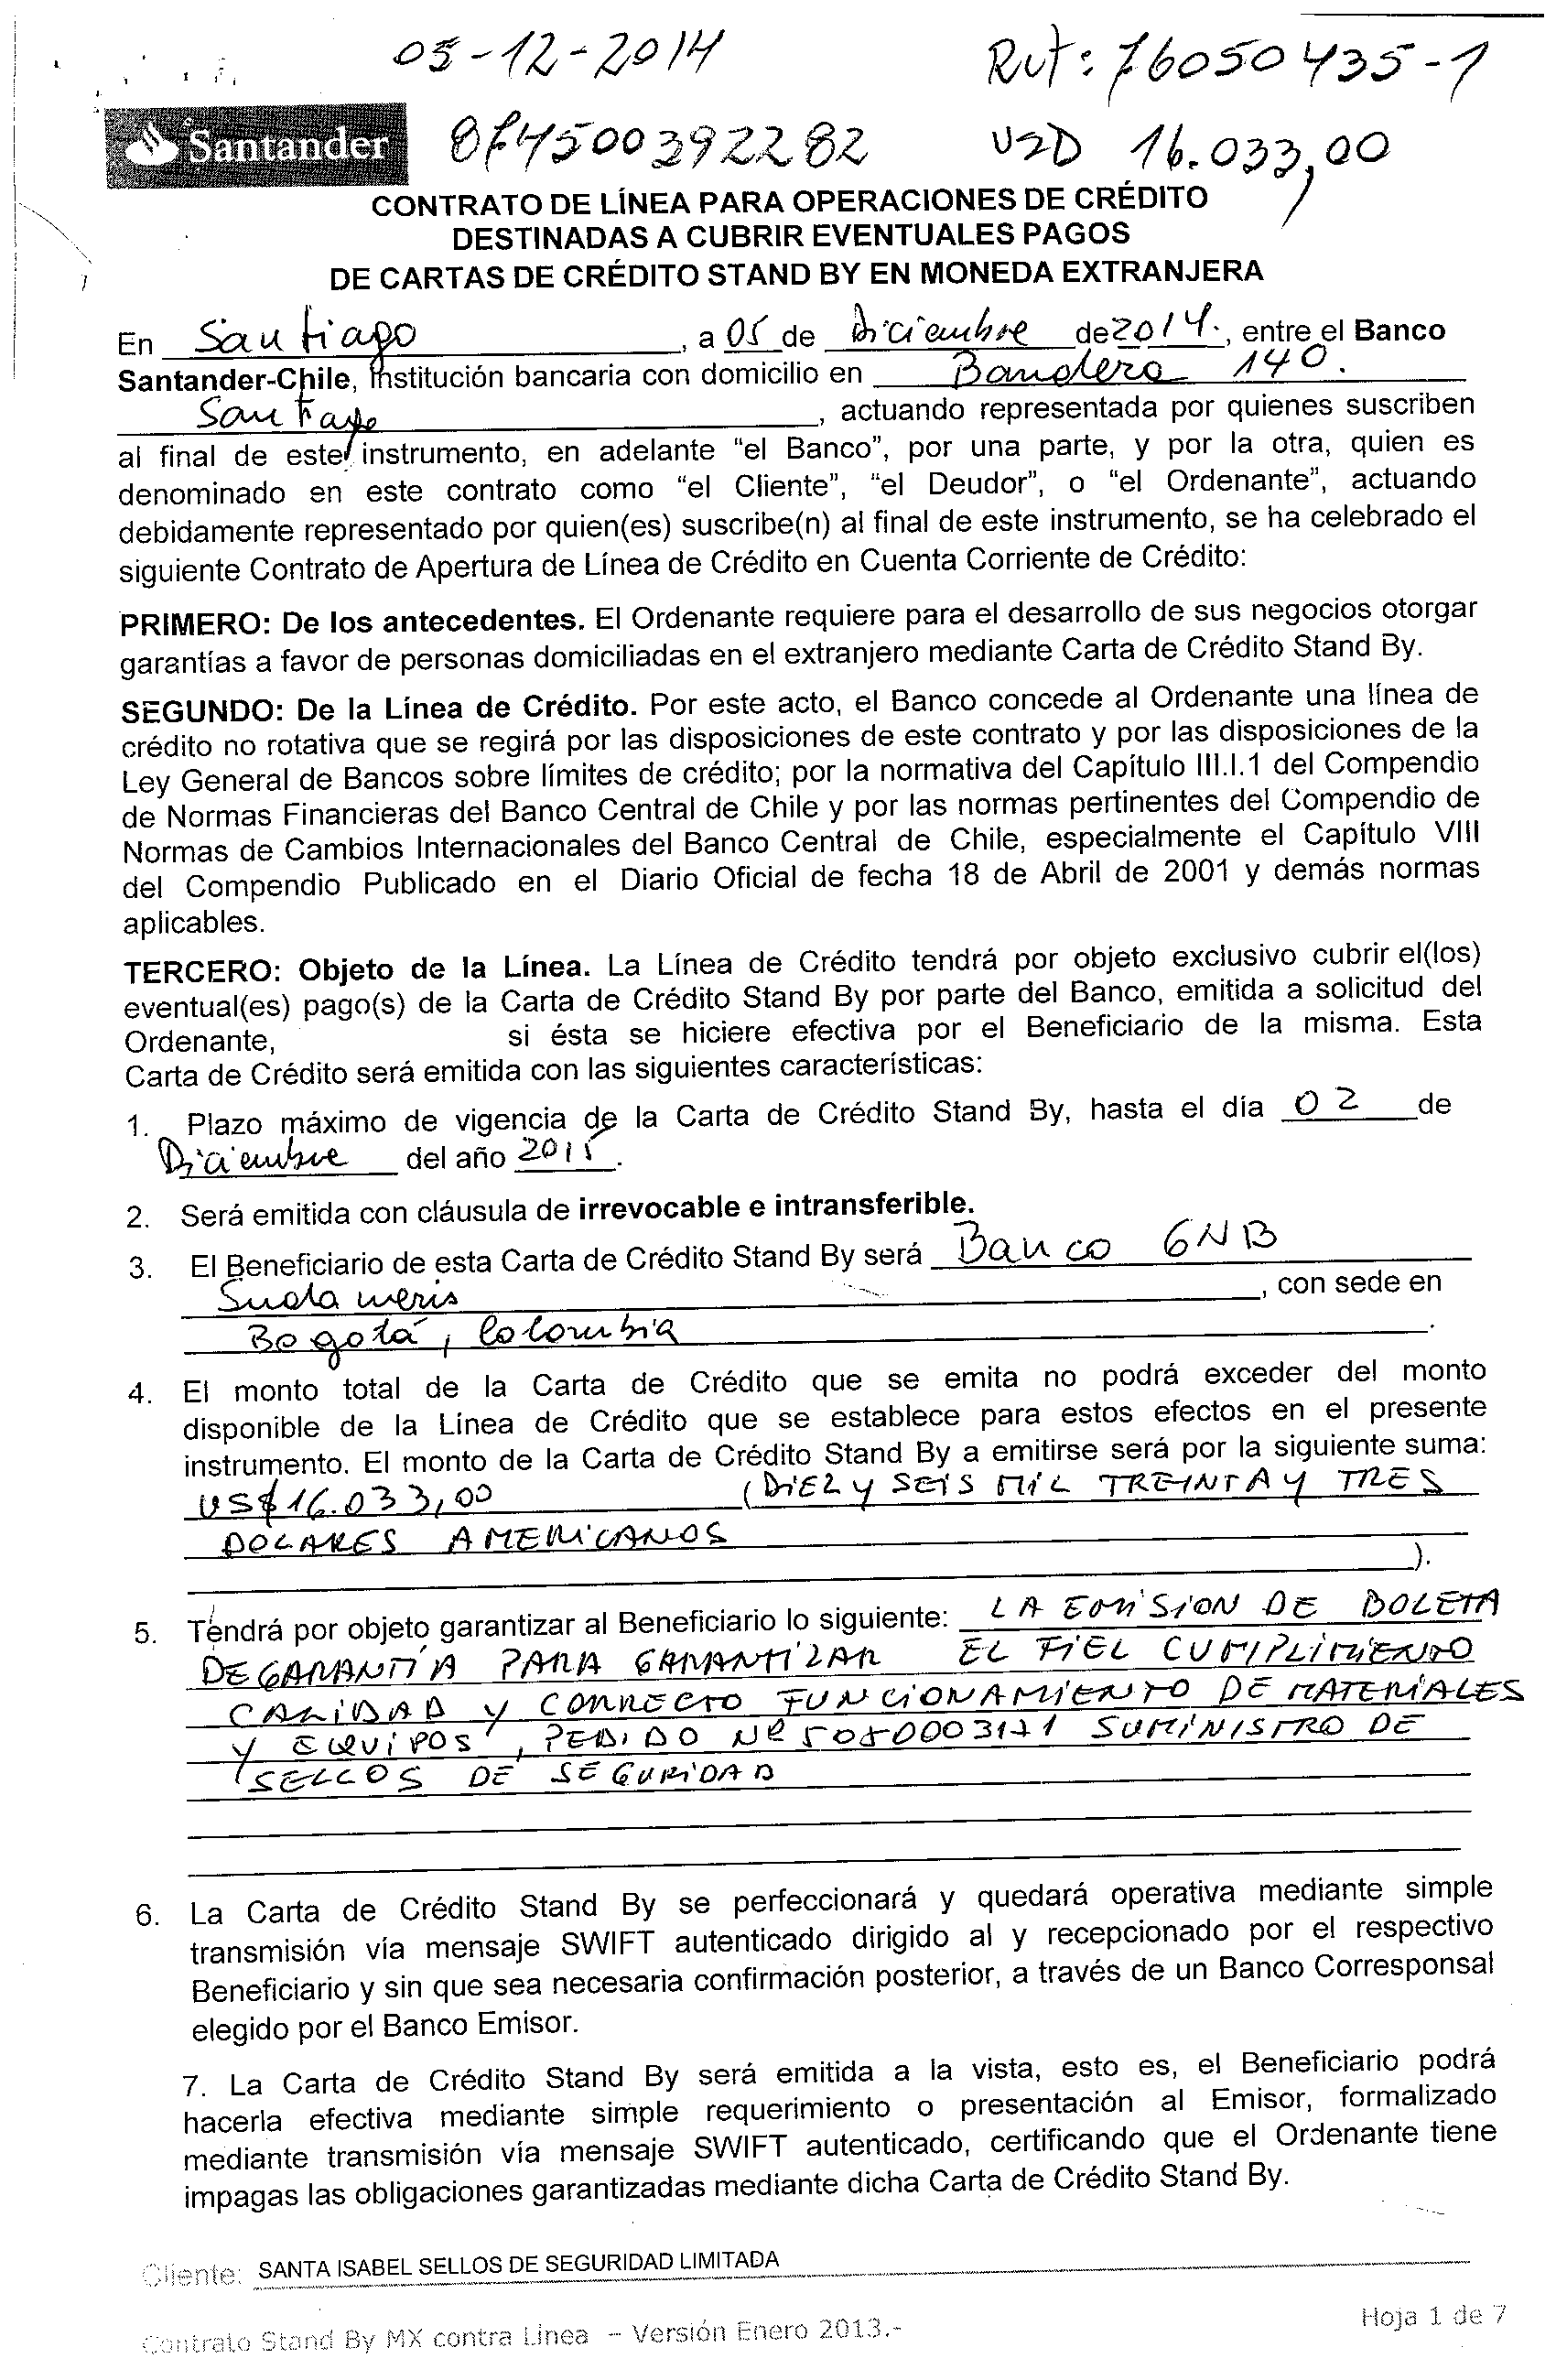 05-12-2014 Rut: 76050435-1
Santander 0P4500392282 USD 16.033,00
CONTRATO DE LÍNEA PARA OPERACIONES DE CRÉDITO
DESTINADAS A CUBRIR EVENTUALES PAGOS
DE CARTAS DE CRÉDITO STAND BY EN MONEDA EXTRANJERA
En Santiago, a 05 de Diciembre de 2014., entre el Banco
Santander-Chile, Institución bancaria con domicilio en Bandera 140.
Santiago, actuando representada por quienes suscriben
al final de este instrumento, en adelante "el Banco", por una parte, y por la otra, quien es
denominado en este contrato como "el Cliente", "el Deudor", o "el Ordenante", actuando
debidamente representado por quien(es) suscribe(n) al final de este instrumento, se ha celebrado el
siguiente Contrato de Apertura de Línea de Crédito en Cuenta Corriente de Crédito:
PRIMERO: De los antecedentes. El Ordenante requiere para el desarrollo de sus negocios otorgar
garantías a favor de personas domiciliadas en el extranjero mediante Carta de Crédito Stand By.
SEGUNDO: De la Línea de Crédito. Por este acto, el Banco concede al Ordenante una línea de
crédito no rotativa que se regirá por las disposiciones de este contrato y por las disposiciones de la
Ley General de Bancos sobre límites de crédito; por la normativa del Capítulo III.I.1 del Compendio
de Normas Financieras del Banco Central de Chile y por las normas pertinentes del Compendio de
Normas de Cambios Internacionales del Banco Central de Chile, especialmente el Capítulo VIII
del Compendio Publicado en el Diario Oficial de fecha 18 de Abril de 2001 y demás normas
aplicables.
TERCERO: Objeto de la Línea. La Línea de Crédito tendrá por objeto exclusivo cubrir el(los)
eventual(es) pago(s) de la Carta de Crédito Stand By por parte del Banco, emitida a solicitud del
Ordenante, si ésta se hiciere efectiva por el Beneficiario de la misma. Esta
Carta de Crédito será emitida con las siguientes características:
1. Plazo máximo de vigencia de la Carta de Crédito Stand By, hasta el día 02 de
Diciembre del año 2015.
2. Será emitida con cláusula de irrevocable e intransferible.
3. El Beneficiario de esta Carta de Crédito Stand By será Banco GNB
Sudameris, con sede en
Bogotá, Colombia.
4. El monto total de la Carta de Crédito que se emita no podrá exceder del monto
disponible de la Línea de Crédito que se establece para estos efectos en el presente
instrumento. El monto de la Carta de Crédito Stand By a emitirse será por la siguiente suma:
US$16.033,00 (DIEZ Y SEIS MIL TREINTA Y TRES
DOLARES AMERICANOS
).
5. Tendrá por objeto garantizar al Beneficiario lo siguiente: LA EMISION DE BOLETA
DE GARANTÍA PARA GARANTIZAR EL FIEL CUMPLIMIENTO
CALIDAD Y CORRECTO FUNCIONAMIENTO DE MATERIALES
Y EQUIPOS, PEDIDO NR SUMINISTRO DE
SELLOS DE SEGURIDAD
6. La Carta de Crédito Stand By se perfeccionará y quedará operativa mediante simple
transmisión vía mensaje SWIFT autenticado dirigido al y recepcionado por el respectivo
Beneficiario y sin que sea necesaria confirmación posterior, a través de un Banco Corresponsal
elegido por el Banco Emisor.
7. La Carta de Crédito Stand By será emitida a la vista, esto es, el Beneficiario podrá
hacerla efectiva mediante simple requerimiento o presentación al Emisor, formalizado
mediante transmisión vía mensaje SWIFT autenticado, certificando que el Ordenante tiene
impagas las obligaciones garantizadas mediante dicha Carta de Crédito Stand By.
Cliente: SANTA ISABEL SELLOS DE SEGURIDAD LIMITADA
Hoja 1 de 7
Contrato Stand By MX contra Línea – Versión Enero 2013.-